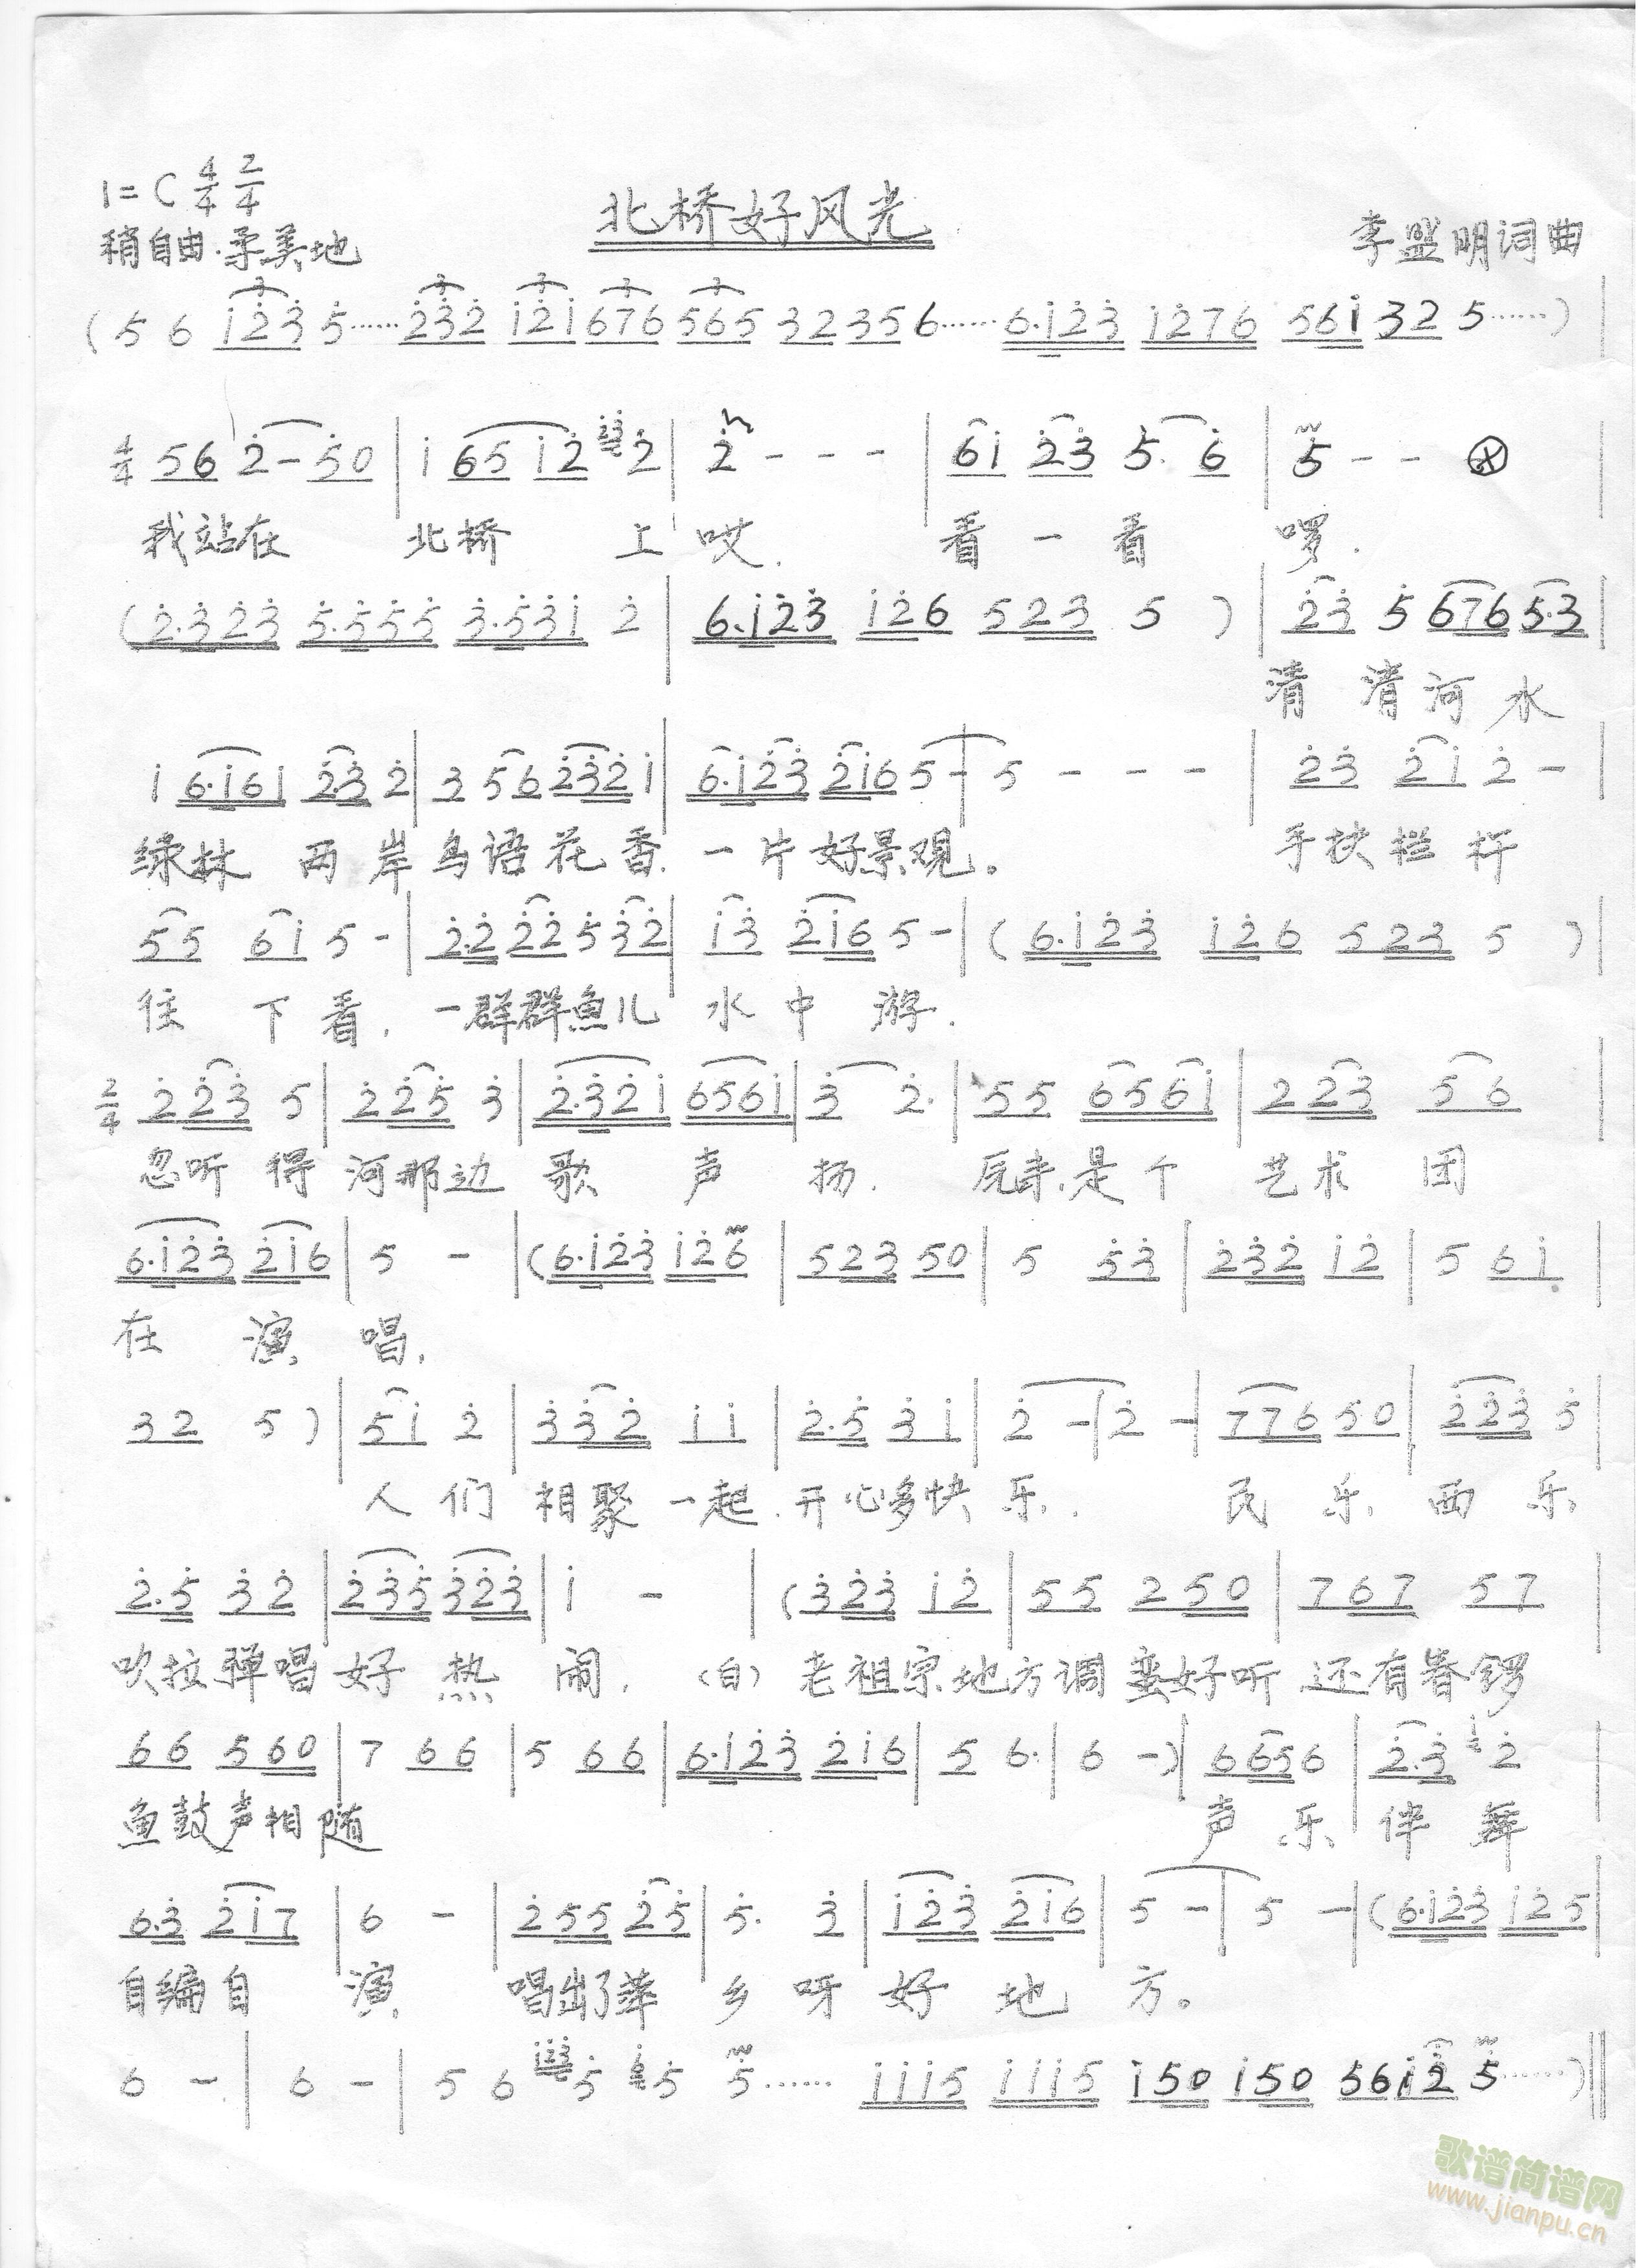 1=C 4/4 2/4
北桥好风光
稍自由.柔美地
李盟明词曲
(5 6 i̇2̇3̇ 5̇……2̇3̇2̇ i̇2̇i̇ 676 565 32 35 6……6.i̇2̇3̇ i̇276 56i̇ 32 5……)
4/4 56 2̇-5̇0 | i̇ 65 i̇2̇ 2̇3̇ 2̇ | 2̇--- | 6i̇ 2̇3̇ 5̇. 6̇ | 5̇--
我站在 北桥 上哎. 看一看 啰.
(2̇.3̇2̇3̇ 5̇.5̇5̇5̇ 3̇.5̇3̇i̇ 2̇ | 6.i̇2̇3̇ i̇2̇6 523 5 ) | 2̇3̇ 5̇ 676 5.3 |
清清河水
i̇ 6.i̇6i̇ 2̇3̇ 2̇ | 3 5 6 2̇3̇2̇i̇ | 6.i̇2̇3̇ 2̇i̇6 5- | 5--- | 2̇3̇ 2̇i̇ 2̇- |
绿林 两岸鸟语花香.一片好景观。 手扶栏杆
55 6i̇ 5- | 2̇.2̇ 2̇2̇ 5̇ 3̇2̇ | i̇3̇ 2̇i̇6 5- | (6.i̇2̇3̇ i̇2̇6 523 5 ) |
往下看.一群群鱼儿水中游.
2/4 2̇2̇3̇ 5 | 2̇2̇5̇ 3̇ | 2̇.3̇2̇i̇ 656i̇ | 3̇ 2̇. | 55 656i̇ | 223 56 |
忽听得河那边歌声扬. 原来是个艺术团
6.i̇2̇3̇ 2̇i̇6 | 5 - | (6.i̇2̇3̇ i̇2̇6 | 523 50 | 5 5̇3̇ | 2̇3̇2̇ i̇2̇ | 5 6i̇ |
在演唱.
32 5 ) | 5i̇ 2̇ | 3̇3̇2̇ i̇i̇ | 2̇.5̇ 3̇i̇ | 2̇ - | 2̇ - | 776 50 | 2̇2̇3̇ 5̇ |
人们相聚一起.开心多快乐. 民乐、西乐、
2̇.5̇ 3̇2̇ | 2̇3̇5̇ 3̇2̇3̇ | i̇ - | (3̇2̇3̇ i̇2̇ | 55 250 | 767 57 |
吹拉弹唱好热闹.(白)老祖宗地方调蛮好听还有春锣
66 560 | 7 66 | 5 66 | 6.i̇2̇3̇ 2̇i̇6 | 5 6. | 6 -) | 6656 | 2̇.3̇ 2̇ |
鱼鼓声相随 声乐、伴舞
6.3̇ 2̇i̇7 | 6 - | 2̇55 2̇5̇ | 5̇. 3̇ | i̇2̇3̇ 2̇i̇6 | 5 - | 5 - | (6.i̇2̇3̇ i̇2̇5 |
自编自演 唱出了萍乡呀好地方。
6 - | 6 - | 5 6 i̇2̇3̇ 5̇ 5̇ 5̇…… i̇i̇i̇5 i̇i̇i̇5 i̇50 i̇50 56i̇2̇ 5̇……)
歌谱简谱网
www.jianpu.cn